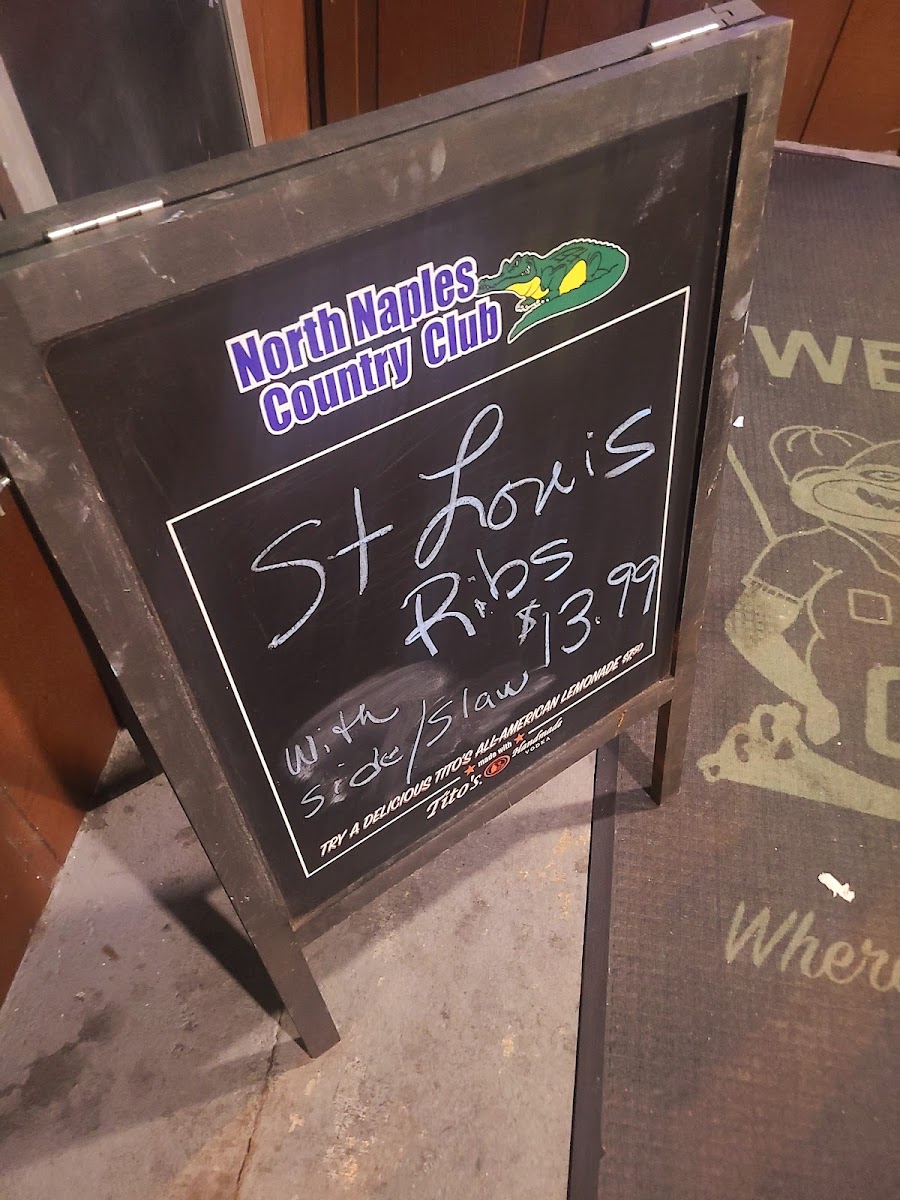 North Naples
Country Club
St Louis
Ribs
$13.99
With
side/Slaw
TRY A DELICIOUS TITO'S ALL-AMERICAN LEMONADE
made with
Tito's Handmade
VODKA
WE
Where